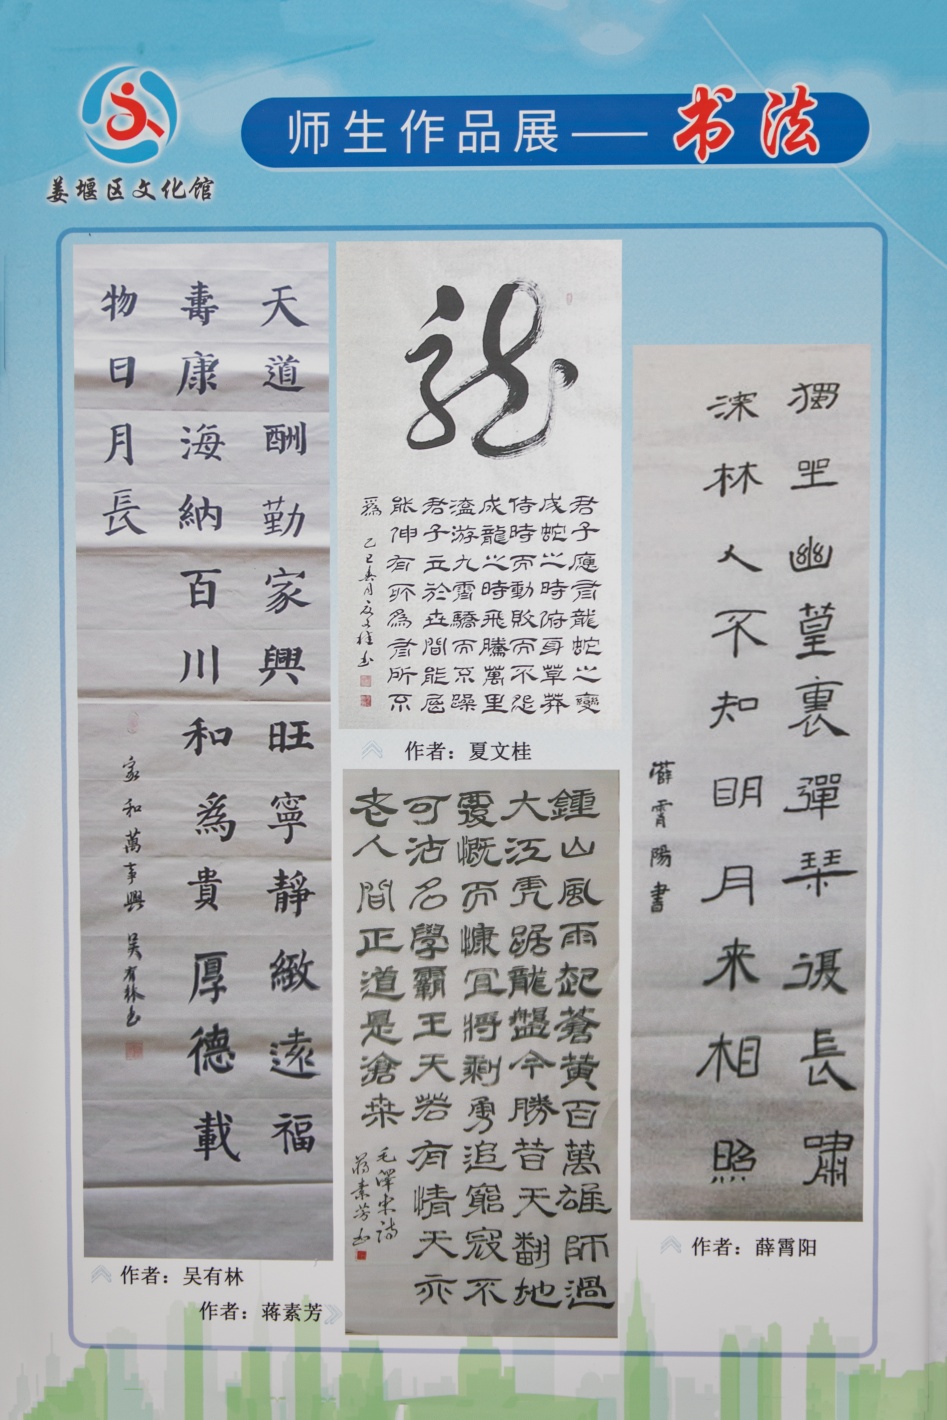 姜堰区文化馆
师生作品展——书法
天道酬勤家興旺寧靜緻遠福
壽康海納百川和為貴厚德載
物日月長
家和萬事興 吴有林书
作者：吴有林
龍
君子應有龍蛇之變
成蛇之時俯身草莽
侍時而動敗而不怨
成龍之時飛騰萬里
澐游九霄驕而不躁
君子立於世間能屈
能伸有所為有所不
為
乙巳 月 文桂书
作者：夏文桂
鍾山風雨起蒼黄百萬雄師過
大江虎踞龍盤今勝昔天翻地
覆慨而慷宜將剩勇追窮寇不
可沽名學霸王天若有情天亦
老人間正道是滄桑
毛澤东詩
蒋素芳书
作者：蒋素芳
獨坐幽篁裏彈琴復長嘯
深林人不知明月来相照
薛霄陽書
作者：薛霄阳